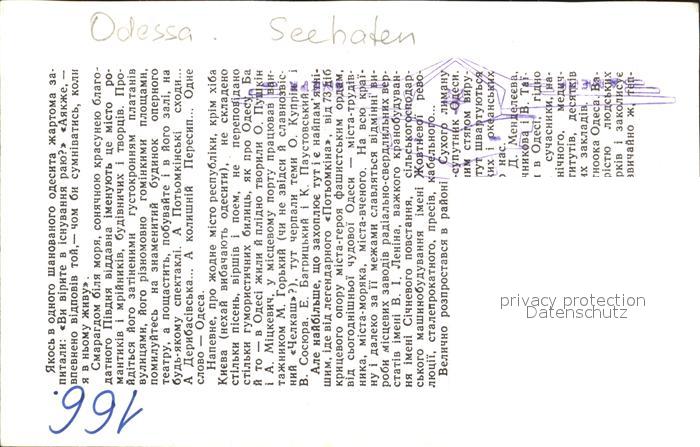 Odessa. Seehafen
Якось в одного шанованого одесита жартома за-
питали: «Ви вірите в існування раю?» «Аякже, —
впевнено відповів той,— чом би сумніватись, коли
я в ньому живу».
Смарагдом біля моря, сонячною красунею благо-
датного Півдня віддавна іменують це місто ро-
мантиків і мрійників, будівничих і творців. Про-
йдіться його затіненими густокронним платанів
вулицями, його різномовно гомінкими площами,
помилуйтесь на знаменитий будинок оперного
театру, а пощастить, побувайте і в його залі, на
будь-якому спектаклі. А Потьомкінські сходи...
А Дерибасівська... А колишній Пересип... Одне
слово — Одеса.
Напевне, про жодне місто республіки, крім хіба
Києва (нехай вибачають одесити) не складено
стільки пісень, віршів і поем, не переповідано
стільки гумористичних билиць, як про Одесу. Ба
й то — в Одесі жили й плідно творили О. Пушкін
і А. Міцкевич, у місцевому порту працював ван-
тажником М. Горький (чи не звідси й славнозвіс-
ний «Челкаш»?), тут черпали теми О. Купрін і
В. Сосюра, Е. Багрицький і К. Паустовський.
Але найбільше, що захоплює тут і є найпам'ятні-
шим, іде від легендарного «Потьомкіна», від 73 діб
крицевого опору міста-героя фашистським ордам,
від сьогоднішньої чудової Одеси — міста-трудів-
ника, міста-моряка, міста-вченого. На всю краї-
ну і далеко за її межами славляться відмінні ви-
роби місцевих заводів радіально-свердлільних вер-
статів імені В. І. Леніна, важкого кранобудуван-
ня імені Січневого повстання, сільськогосподар-
ського машинобудування імені Жовтневої рево-
люції, сталепрокатного, пресів, кабельного.
Велично розпростався в районі Сухого лиману
супутник Одеси.
ним стягом виру-
тут швартуються
их і океанських
нас.
Д. Менделєєва,
никова і В. Таї-
і в Одесі гідно
сучасники, на-
нічного, медич-
титутів, десятків
их закладів.
иоока Одеса. Ва-
рістю людських
рків і заколисує
звичайно ж, теп-
166.
privacy protection
Datenschutz